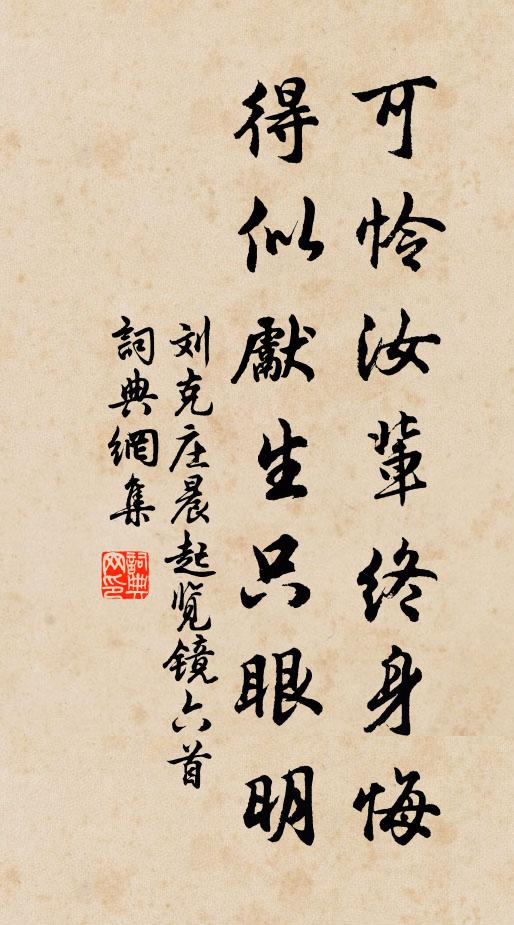 可怜汝輩终身悔
得似獻生只眼明
刘克庄晨起览镜六首
詞典網集
詞典网印